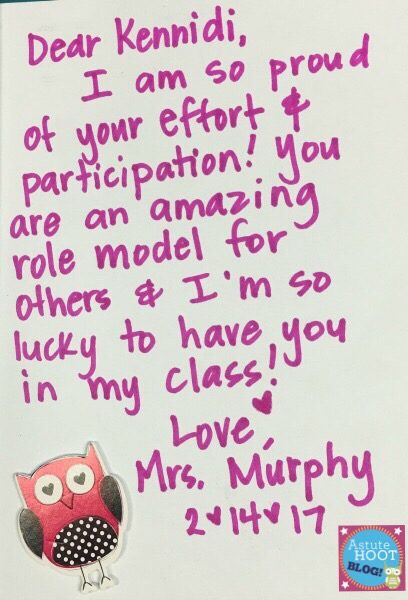 Dear Kennidi,
I am so proud
of your effort &
participation! You
are an amazing
role model for
others & I'm so
lucky to have you
in my class!
Love,
Mrs. Murphy
2♥14♥17
Astute
HOOT
BLOG!